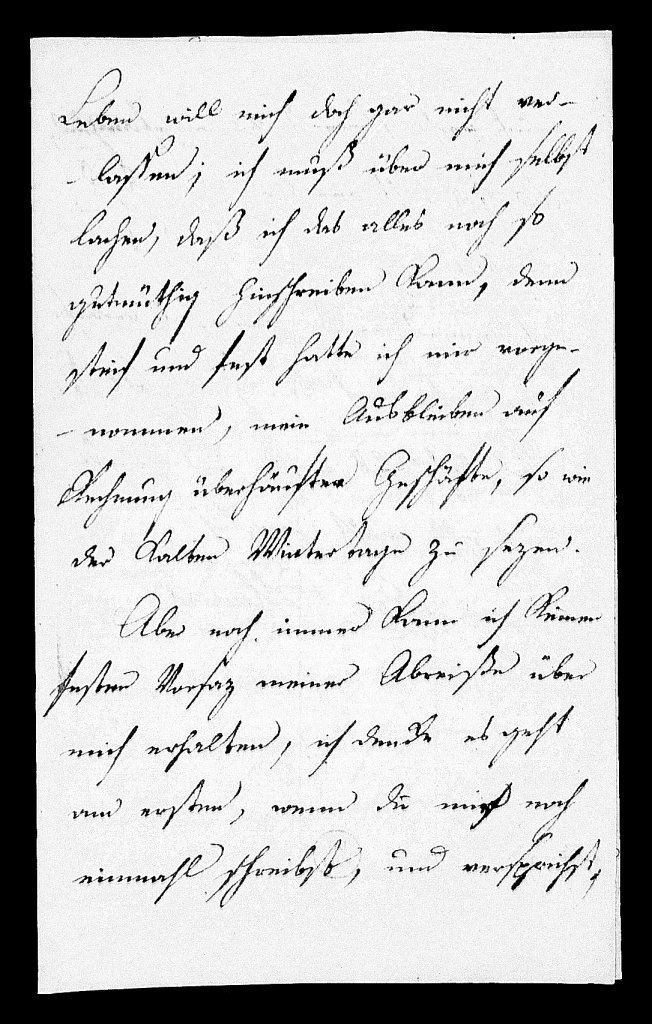 Leben will mich doch gar nicht ver-
- lassen; ich muß über mich selbst
lachen, daß ich das alles noch so
gutmüthig hinschreiben kann, denn
steif und fest hatte ich mir vorge-
- nommen, mein Ausbleiben auf
Rechnung überhäufter Geschäfte, so wie
der kalten Wintertage zu sezen.
Aber noch immer kann ich keinen
festen Vorsaz meiner Abreiße über
mich erhalten, ich denke es geht
am ersten, wenn du mir noch
einmahl schreibst, und versprichst,